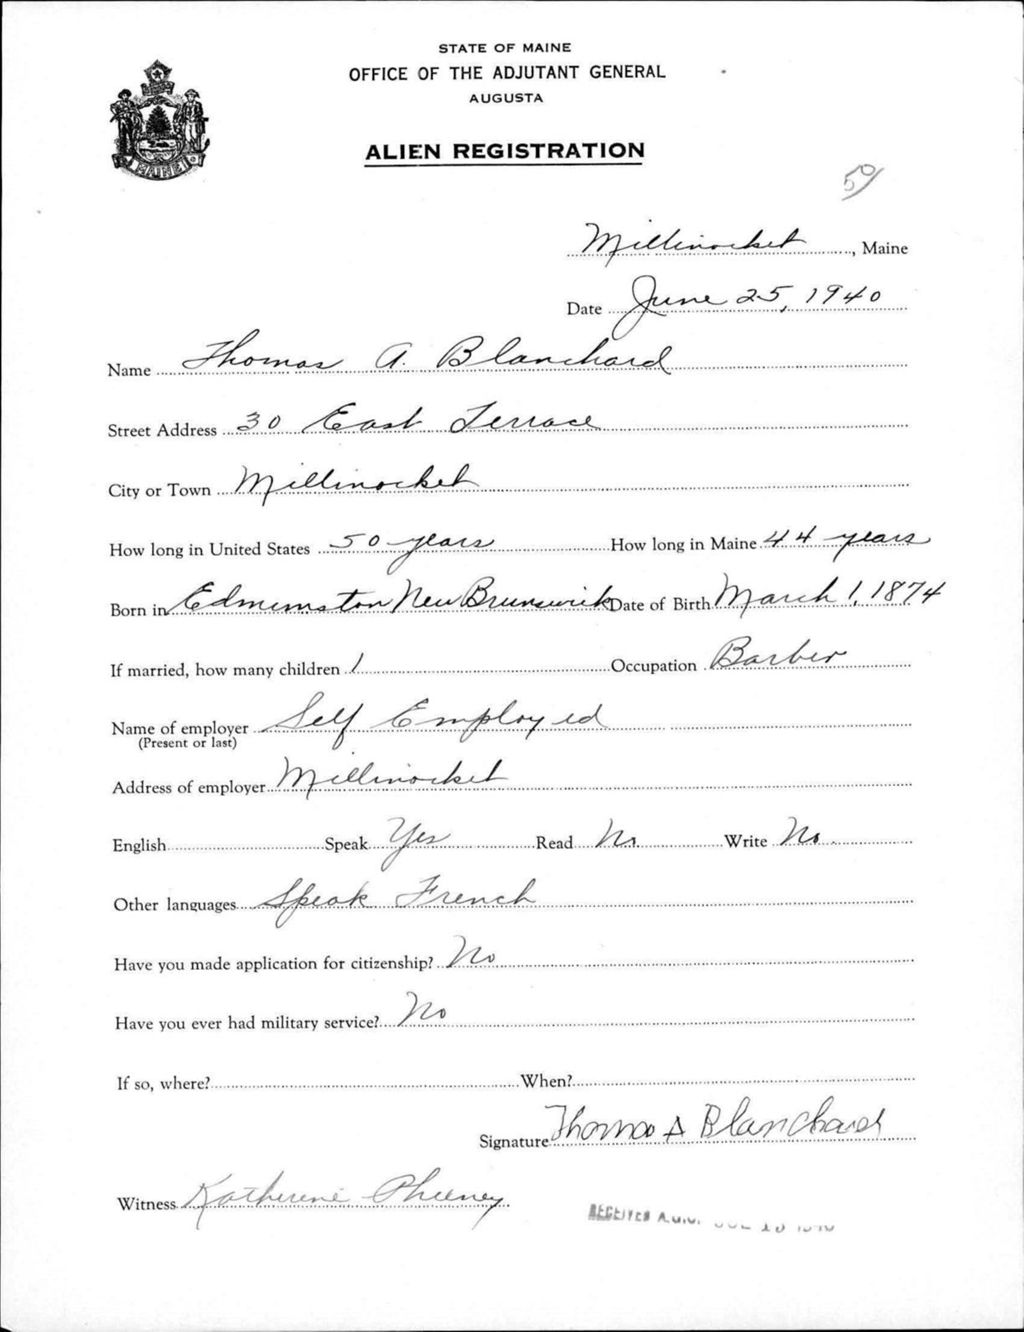 STATE OF MAINE
OFFICE OF THE ADJUTANT GENERAL
AUGUSTA
ALIEN REGISTRATION
MAINE
Millinocket, Maine
Date June 25, 1940
Name Thomas A. Blanchard
Street Address 30 East Terrace
City or Town Millinocket
How long in United States 50 years How long in Maine 44 years
Born in Edmunston New Brunswick Date of Birth March 1, 1874
If married, how many children 1 Occupation Barber
Name of employer Self Employed
(Present or last)
Address of employer Millinocket
English Speak Yes Read No Write No
Other languages Speak French
Have you made application for citizenship? No
Have you ever had military service? No
If so, where? When?
Signature Thomas A Blanchard
Witness Katherine Pheeney
RECEIVED A.G.O.